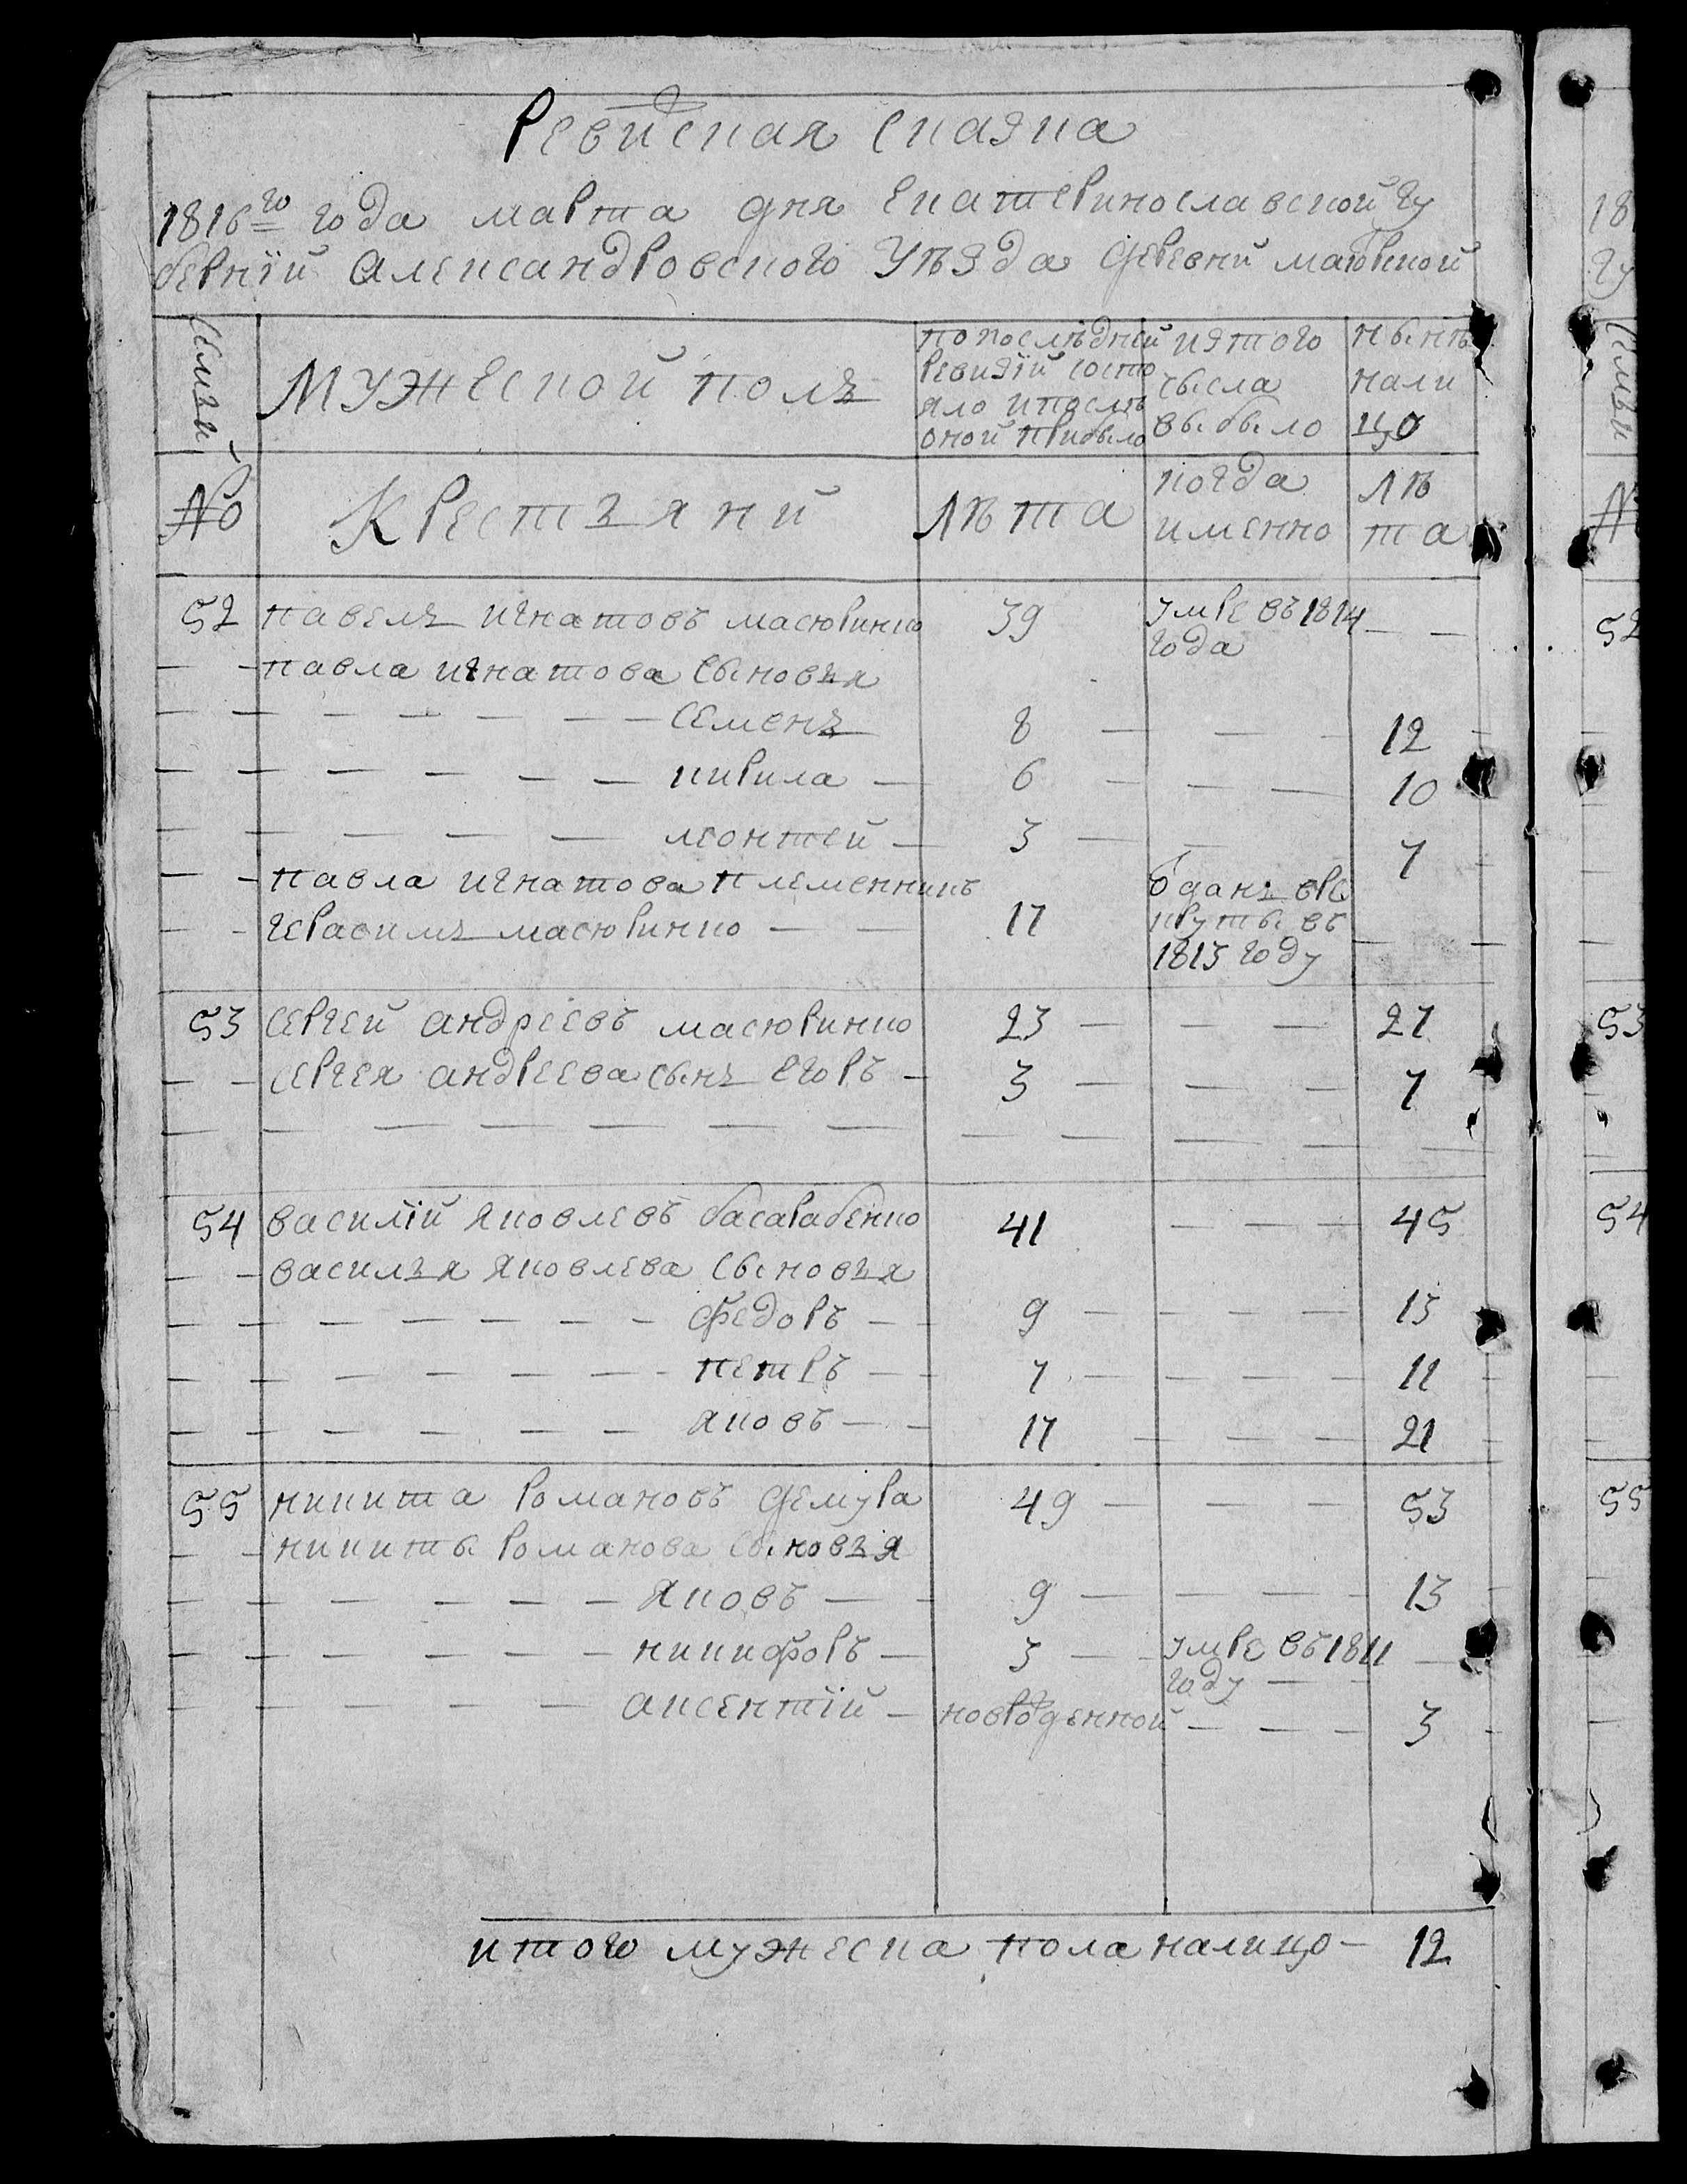 Ревиская Сказка
1816го года марта дня Екатеринославской гу
берний Александровского Уѣзда Деревни Маюрской
Семьи
Мужеской полъ
по последней ревизїи состо яло и послѣ оной прибыло
изтого числа выбыло
нынѣ нали цо
№
Крестьяни
Лѣта
когда именно
Лѣ та
52 павелъ игнатовъ масюринко 39 умре въ 1814 года
павла игнатова сыновья
Семенъ 8 12
кирила 6 10
леонтей 3 7
павла игнатова племенникъ
герасимъ масюринко 17 Отданъ вре круты въ 1813 году
53 Сергей андреевъ масюринко 23 27
Сергея андреева сынъ Егоръ 3 7
54 василїй яковлевъ басарабенко 41 45
василья яковлева сыновья
федоръ 9 13
петръ 7 11
яковъ 17 21
55 никита романовъ демура 49 53
никиты романова сыновья
яковъ 9 13
никифоръ 3 умре въ 1811 году
аксентїй новрожденной 3
итого мужеска пола налицо 12
18
гу
Семьи
№
52
53
54
55